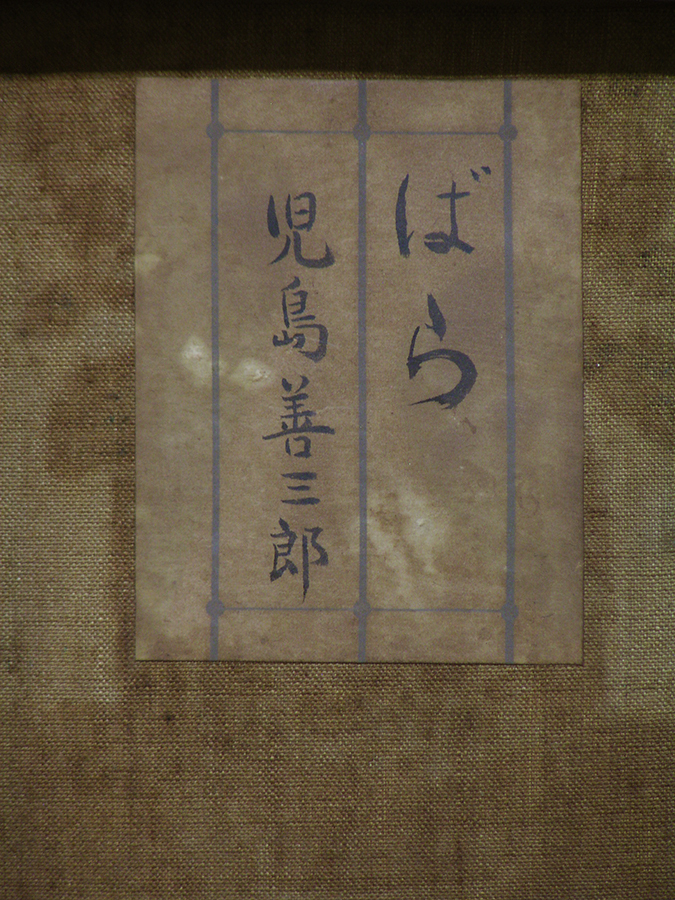 ばら
児島善三郎